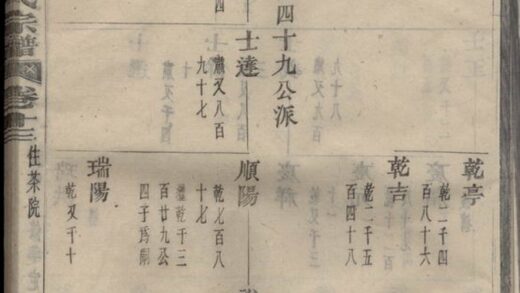 四十九公派
乾亭
乾二千四
百八十六
乾吉
乾二千五
百四十八
士達
肅又八百
九十七
順陽
乾七百八
十七
繼乾千三
百廿九公
四子爲嗣
瑞陽
乾又千十
氏宗譜
卷十三
住茶院